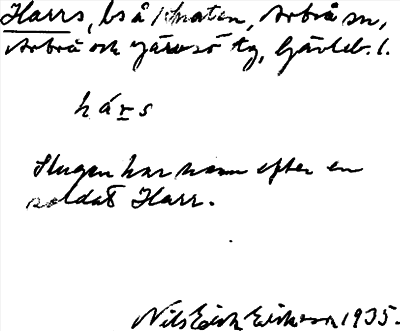 Harrs, bs å Knaten, Arbrå sn,
Arbrå och Järvsö tg, Gävleb. l.
hárs
Stugan har namn efter en
soldat Harr.
Nils Erik Eriksson 1935.